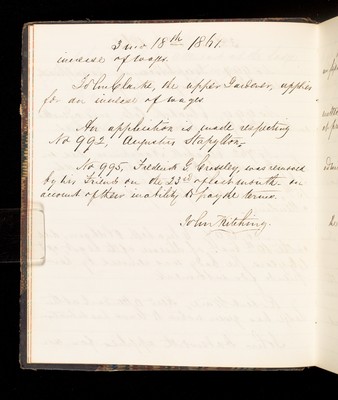 3 mo 18th 1861.
increase of wages.
John Clarke, the upper Gardener, applies
for an increase of wages
An application is made respecting
No 992, Augustus Stapylton.
No 995, Frederick G. Crossley, was removed
by his Friends on the 23rd of last month on
account of their inability to pay the terms.
John Kitching.